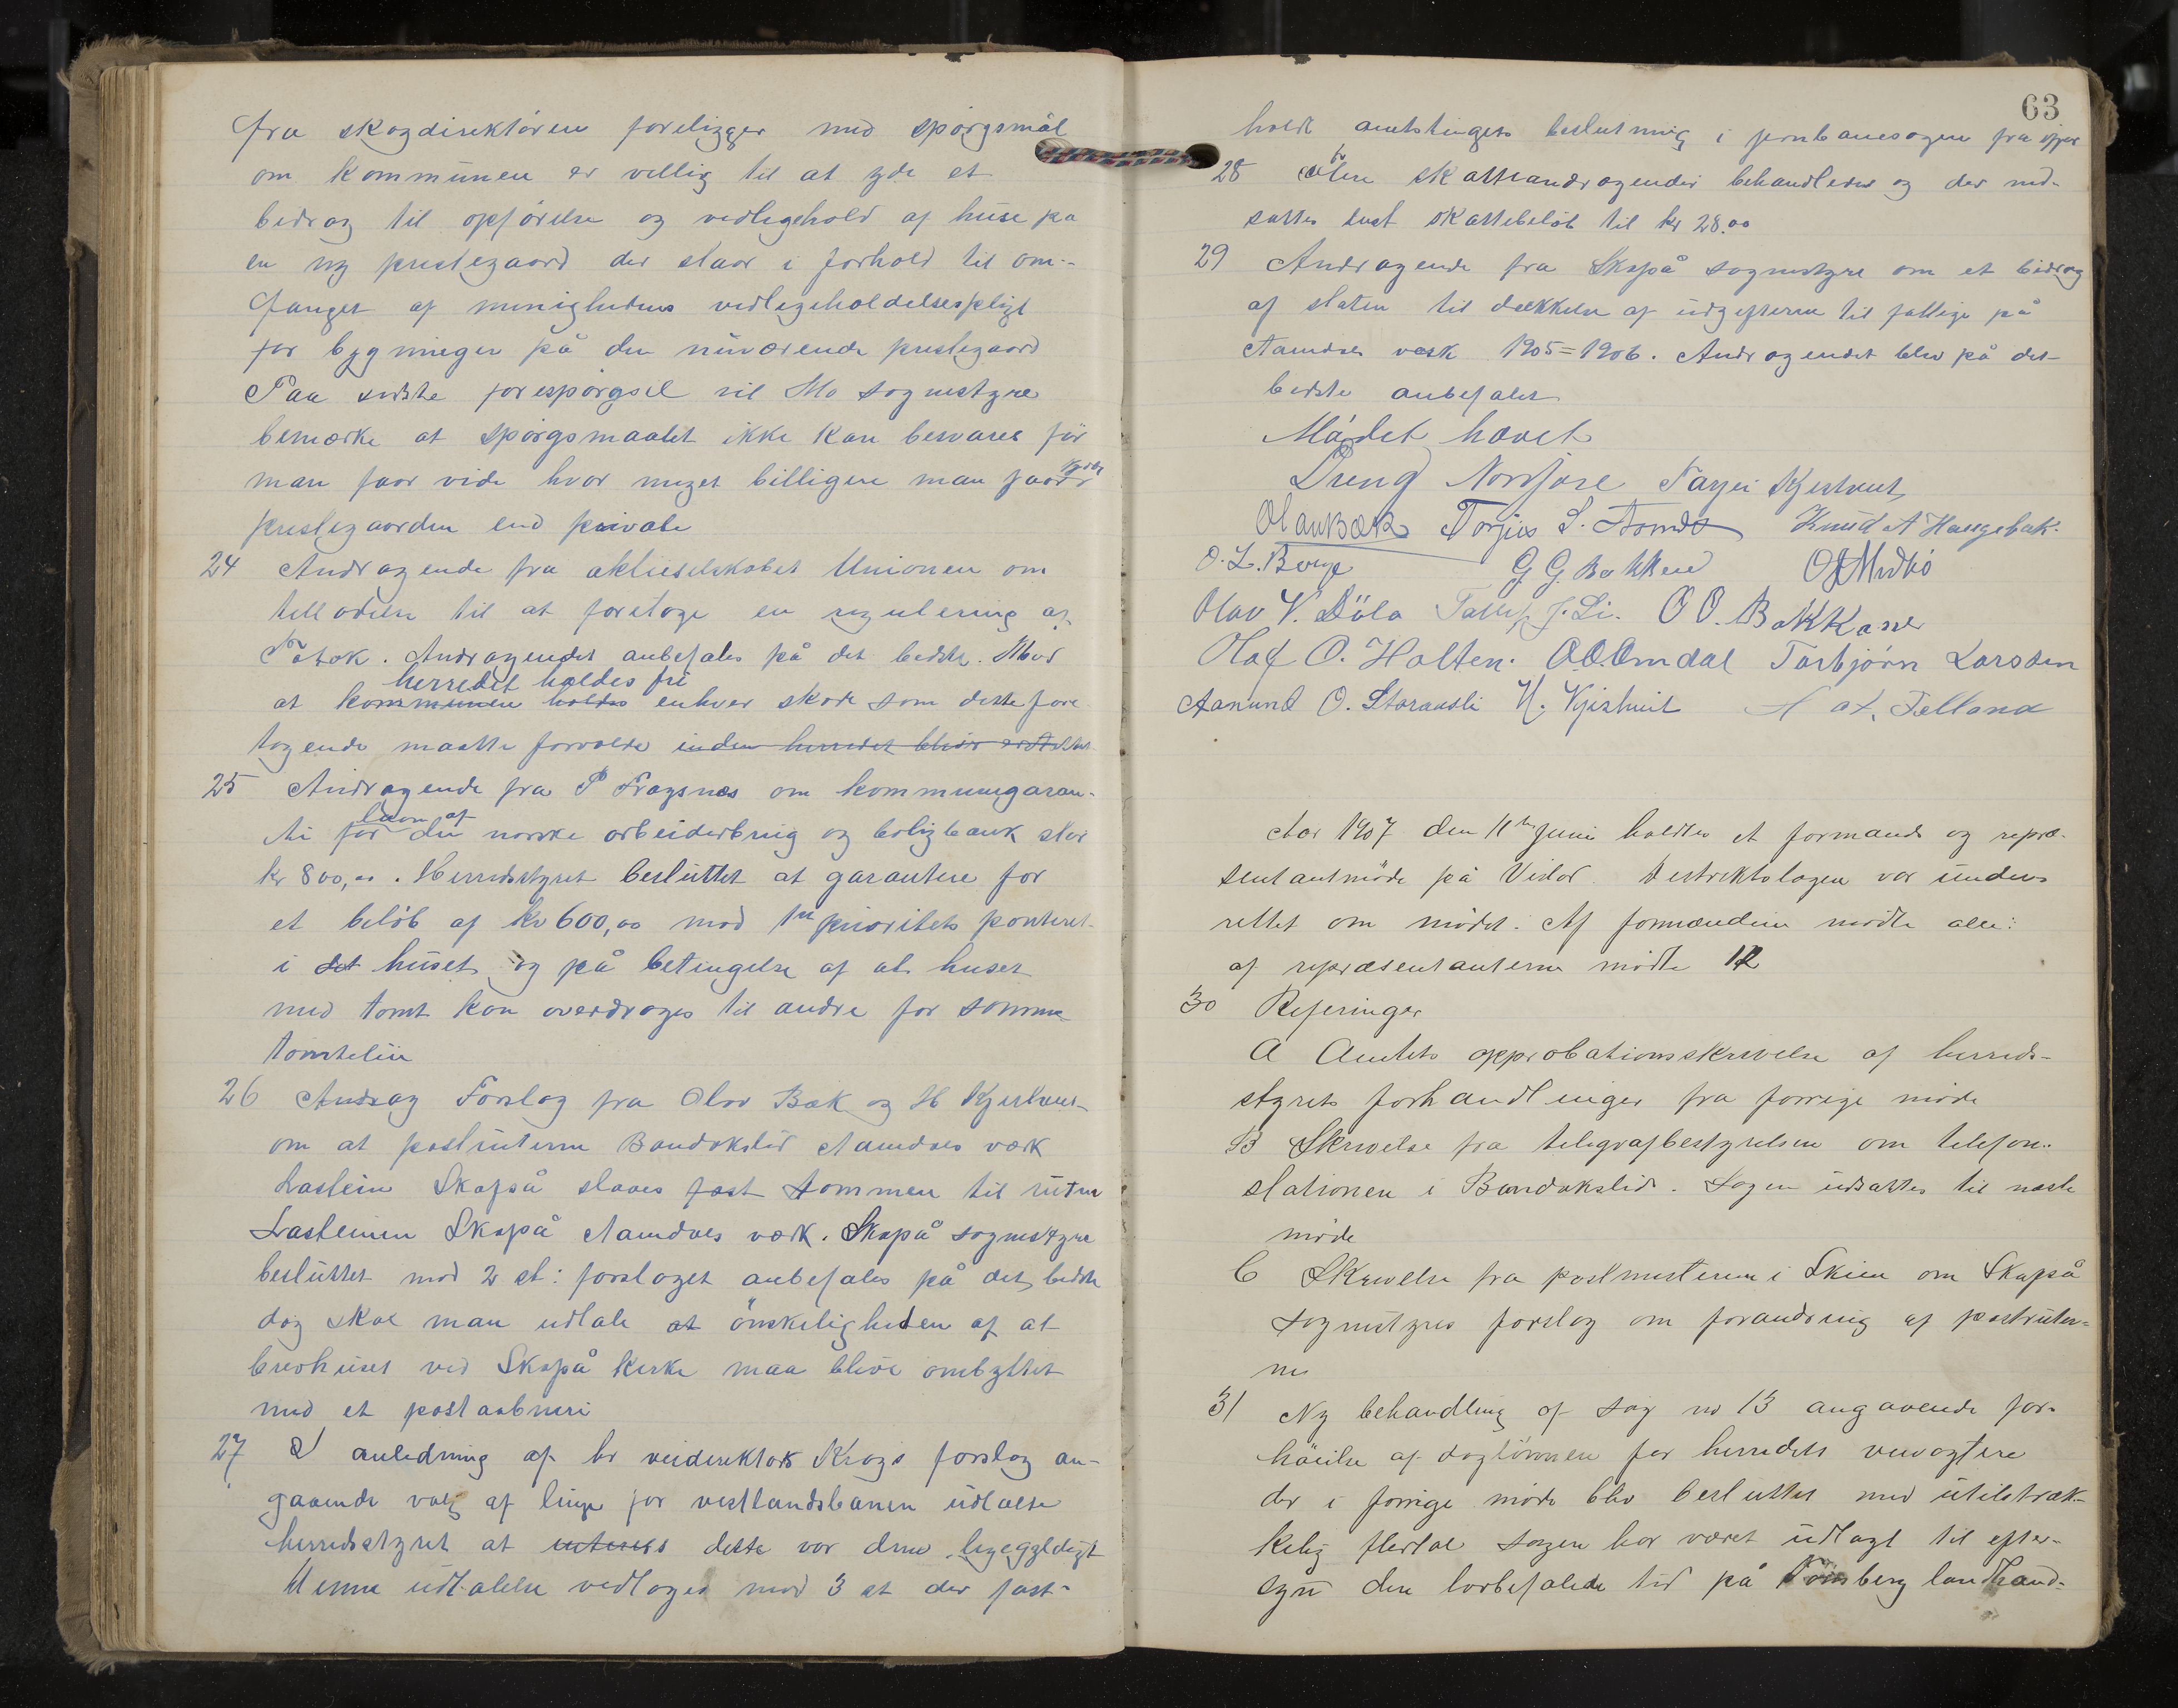 fra skogdirektören foreligger med spörgsmål
om kommunen er villig til at yde et
bidrag til opförelse og vedligehold af huse pa
en ny prestegaard der staar i forhold til om-
fanget af menighedens vedligeholdelsespligt
for bygninger på den nuværende prestegaard
Paa sidste forespörgsel vil Mo sognestyre
bemærke at spörgsmaalet ikke kan besvares för
man faar vide hvor meget billigere man faar
prestegaarden end private
24 Andragende fra aktieselskabet Unionen om
tilladelse til at foretage en regulering af
Totak. Andragendet anbefales på det bedste. Mod
herredet holdes fri
at kommunen holdes enhver skade som dette fore
tagende maatte forvolde inden herredet bliver erstattet
25 Andragende fra P Fragsnes om kommunegaran-
laan af
ti for den norske arbeiderbrug og boligbank stor
kr 800,00. Herredsstyret besluttet at garantere for
et beløb af kr 600,00 mod 1ste prioritets panteret
i det huset og på betingelse af at huset
med tomt kan overdrages til andre for samme
tomteleie
26 Andrag Forslag fra Olav Bæk og H Kjeshvet
om at postruterne Bandakslid Aamdals værk
Lastein Skafså slaaes fast sammen til ruten
Lasteinen Skafså Aamdals værk. Skafså sognestyre
besluttet mod 2 st: forslaget anbefales på det bedste
dog skal man udtale at önskeligheden af at
brevhuset ved Skafså kirke maa blive ombyttet
med et postaabneri
27 I anledning af hr veidirektör Krags forslag an-
gaaende valg af linje for vestlandsbanen udtalte
herredsstyret at interess dette var dem ligegyldigt
Denne udtalelse vedtoges mod 3 st der fast-
63
holdt amtstingets beslutning i jernbanesagen fra ifjor
28 skatteandragender behandledes og der ned-
sattes tvst skattebelöb til kr 28.00
29 Andragende fra Skafså sognestyre om et bidrag
af staten til dækkelse af udgifterne til fattige på
Aamdals værk 1905=1906. Andragendet blev på det
bedste anbefalet
Mödet hævet
Dreng Norsjore Tarjei Kjeshvet
Olav Bæk Torjus S. Aamdal Knud A Haugebak.
O. L. Berge G G Bakken O J Midbö
Olav V. Döla Tallef J. Li. O O. Bakkane
Olaf O. Holten. O O Omdal Torbjörn Larssen
Aanund O. Storansli H. Kjeshvet A at. Felland
Aar 1907 den 11te Juni holdtes et formands og repræ-
sentantmöde på Vislar. Distriktslægen var under-
rettet om mödet. Af formændene mödte alle:
af repræsentanterne mödte 12
30 Referinger
A Amtets approbationsskrivelse af herreds-
styrets forhandlinger fra forrige möde
B Skrivelse fra telegrafbestyrelsen om telefon-
stationen i Bandakslid. Sagen udsattes til næste
möde
C Skrivelse fra postmesteren i Skien om Skafså
sognestyres forslag om forandring af postruter-
ne
31 Ny behandling af sag no 13 angaaende for-
höielse af daglönnen for herredets veivogtere
der i forrige möde blev besluttet med utilstræk-
kelig flertal Sagen har været udlagt til efter-
syn den lovbefalede tid på Tönsberg landhand-